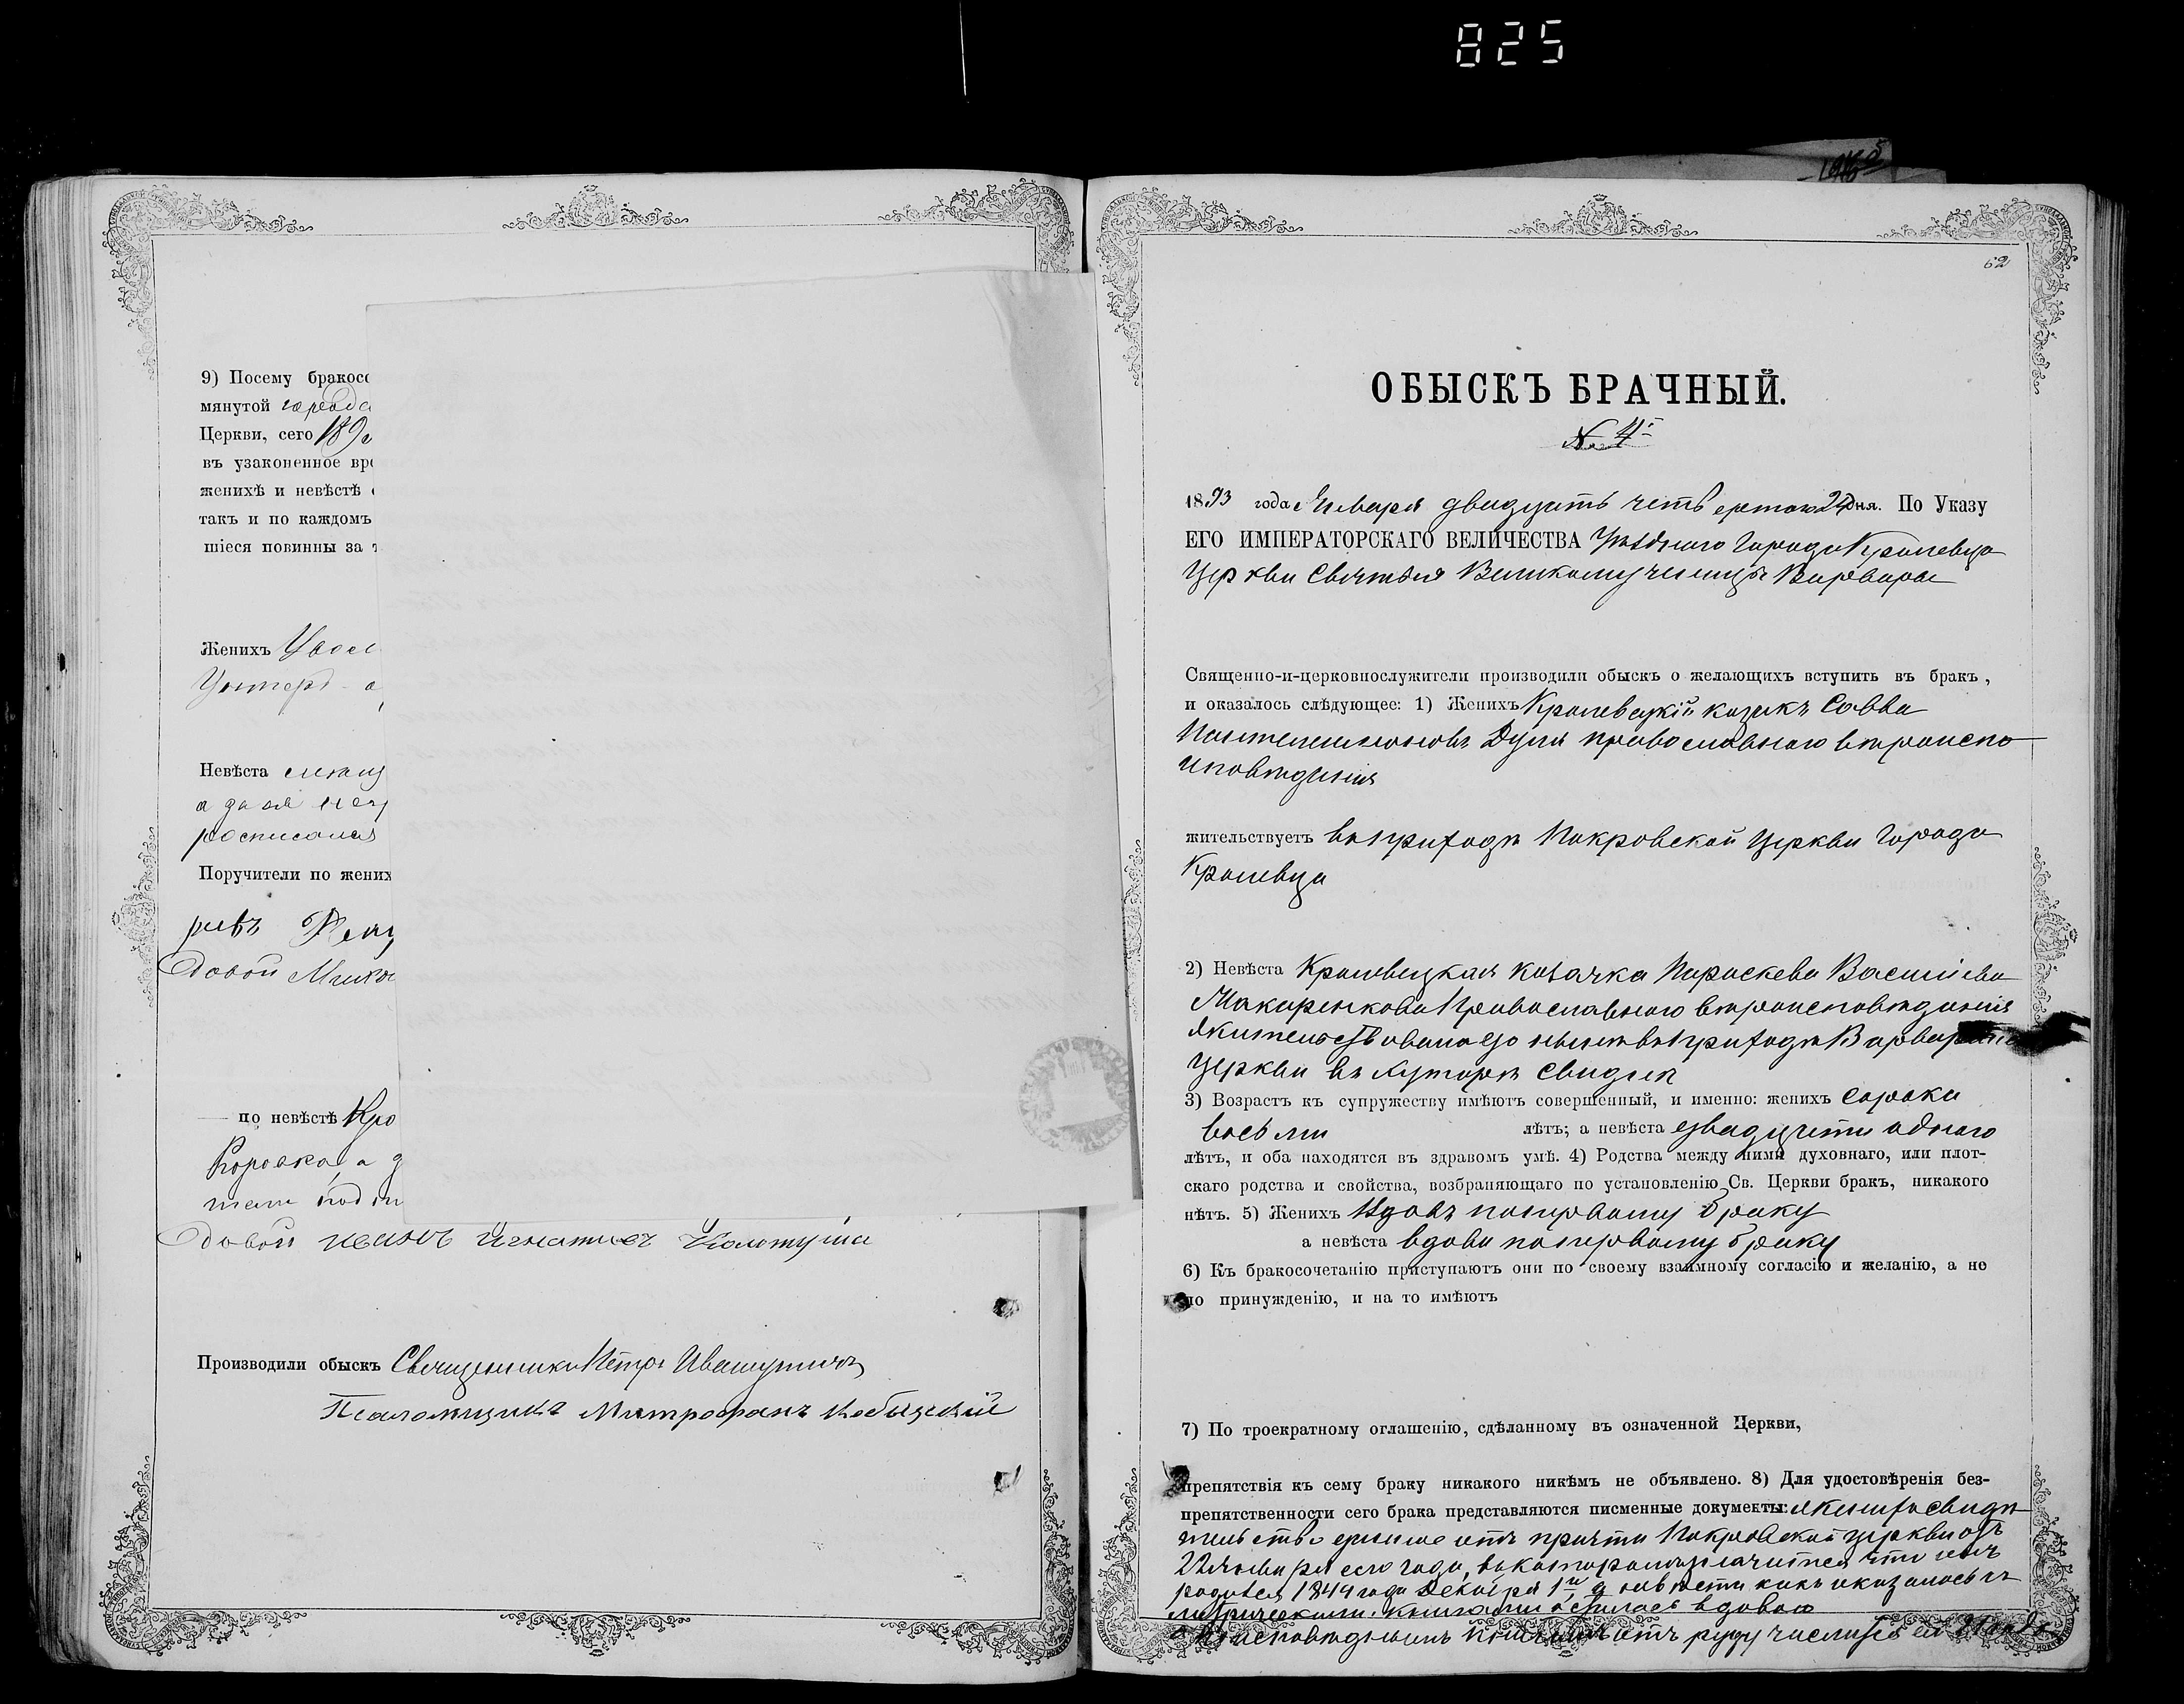 825
9) Посему бракосо
мянутой города
Церкви, сего 189
въ узаконенное вре
женихѣ и невѣстѣ
такъ и по каждомъ
шіеся повинны за т
Женихъ Увол
Унтеръ - о
Невѣста
а за ея негр
росписался
Поручители по жених
довой Мико
по невѣстѣ Кро
Коровка, а
довой Иванъ Игнатиев
Производили обыскъ Священникъ Петръ Ивашутичъ
Псаломщикъ Митрофанъ Кобыжскій
62
ОБЫСКЪ БРАЧНЫЙ.
№ 4й
1893 года Января двадцать четвертого 24 дня. По Указу
ЕГО ИМПЕРАТОРСКАГО ВЕЛИЧЕСТВА Уѣзднаго Города Кролевца
Церкви Святыя Великомученицы Варвары
Священно-и-церковнослужители производили обыскъ о желающихъ вступить въ бракъ,
и оказалось слѣдующее: 1) Женихъ Кролевецкій козакъ Савва
Пантелеимоновъ Дуля православнаго вѣроиспо
исповѣданія
жительствуетъ въ приходѣ Покровской Церкви Города
Кролевца
2) Невѣста Кролевецкая козачка Параскева Василіева
Макаренкова Православнаго вѣроисповѣданія
жительствовала до нынѣ въ приходѣ Варвар
Церкви въ хуторѣ Свидня
3) Возрастъ къ супружеству имѣютъ совершенный, и именно: женихъ сорока
восьми лѣтъ; а невѣста двадцати одного
лѣтъ, и оба находятся въ здравомъ умѣ. 4) Родства между ними духовнаго, или плот-
скаго родства и свойства, возбраняющаго по установленію Св. Церкви бракъ, никакого
нѣтъ. 5) Женихъ Вдовъ по первому браку
а невѣста вдова по первому браку
6) Къ бракосочетанію приступаютъ они по своему взаимному согласію и желанію, а не
по принужденію, и на то имѣютъ
7) По троекратному оглашенію, сдѣланному въ означенной Церкви,
препятствія къ сему браку никакого никѣмъ не объявлено. 8) Для удостовѣренія без-
препятственности сего брака представляются писменные документы: жениха свидѣ
тельство данное отъ причта Покровской церкви отъ
22 января сего года, въ которомъ значится что онъ
родился 1844 года Декабря 1го а невѣста какъ оказалось въ
метрическими книгами осталась вдовою